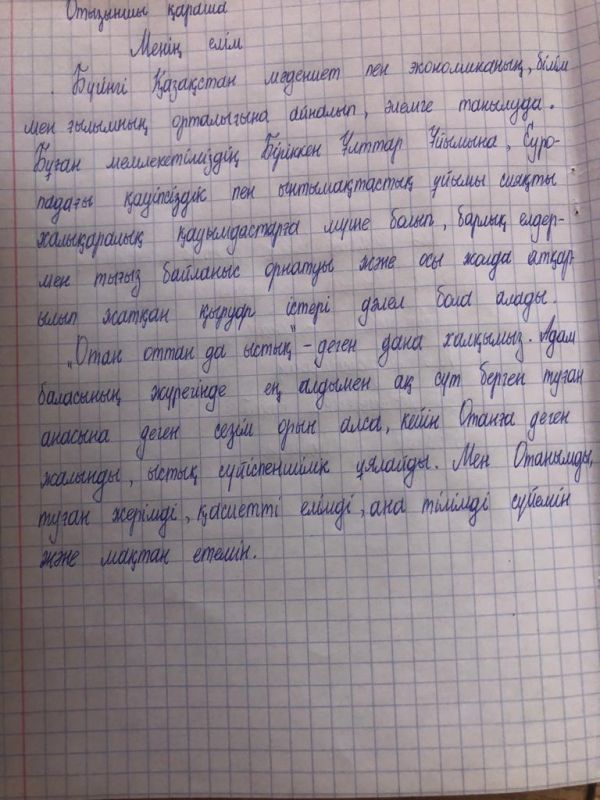 Отызыншы қараша
Менің елім
Бүгінгі Қазақстан мәдениет пен экономиканың, білім
мен ғылымның орталығына айналып, әлемге танылуда.
Бұған мемлекетіміздің Біріккен Ұлттар Ұйымына, Еуро-
падағы қауіпсіздік пен ынтымақтастық ұйымы сияқты
халықаралық қауымдастарға мүше болып, барлық елдер-
мен тығыз байланыс орнатуы және осы жолда атқар-
ылып жатқан қыруар істері дәлел бола алады.
„Отан оттан да ыстық" - деген дана халқымыз. Адам
баласының жүрегінде ең алдымен ақ сүт берген туған
анасына деген сезім орын алса, кейін Отанға деген
жалынды, ыстық сүйіспеншілік ұялайды. Мен Отанымды,
туған жерімді, қасиетті елімді, ана тілімді сүйемін
және мақтан етемін.